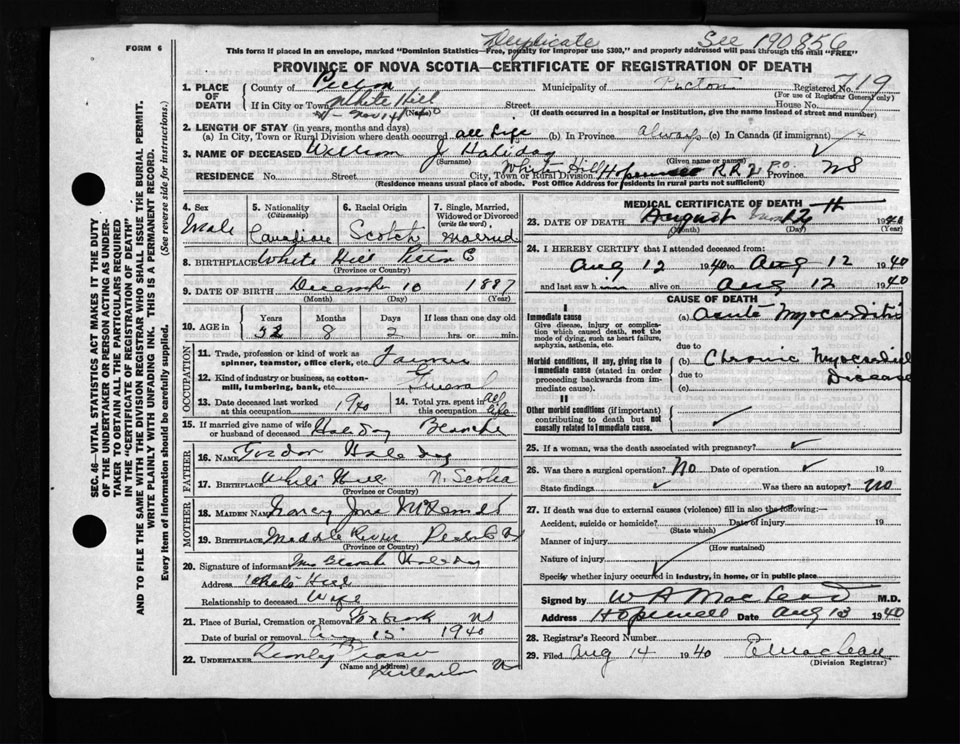 Duplicate See 190856
FORM 6
This form if placed in an envelope, marked "Dominion Statistics—Free, penalty for improper use $300," and properly addressed will pass through the mail "FREE"
PROVINCE OF NOVA SCOTIA—CERTIFICATE OF REGISTRATION OF DEATH
1. PLACE OF DEATH County of Pictou Municipality of Pictou Registered No. 719
(For use of Registrar General only)
If in City or Town White Hill Street House No.
(Name) (If death occurred in a hospital or institution, give the name instead of street and number)
2. LENGTH OF STAY (in years, months and days)
(a) In City, Town or Rural Division where death occurred all life (b) In Province always (c) In Canada (if immigrant)
3. NAME OF DECEASED William J Haliday
(Surname) (Given name or names)
RESIDENCE No. Street City, Town or Rural Division White Hill Hopewell RR2 P.O. Province NS
(Residence means usual place of abode. Post Office Address for residents in rural parts not sufficient)
4. Sex Male
5. Nationality (Citizenship) Canadian
6. Racial Origin Scotch
7. Single, Married, Widowed or Divorced (write the word) Married
8. BIRTHPLACE White Hill
(Province or Country)
9. DATE OF BIRTH December 10 1887
(Month) (Day) (Year)
10. AGE in Years 52 Months 8 Days 2 If less than one day old hrs. or min.
OCCUPATION
11. Trade, profession or kind of work as spinner, teamster, office clerk, etc. Farmer
12. Kind of industry or business, as cotton-mill, lumbering, bank, etc. General
13. Date deceased last worked at this occupation 1940
14. Total yrs. spent in this occupation all life
15. If married give name of wife or husband of deceased Haliday Blanche
FATHER
16. NAME Gordon Haliday
17. BIRTHPLACE White Hill N. Scotia
(Province or Country)
MOTHER
18. MAIDEN NAME Nancy Jane
19. BIRTHPLACE Middle River
(Province or Country)
20. Signature of informant Mrs Blanche Haliday
Address White Hill
Relationship to deceased Wife
21. Place of Burial, Cremation or Removal NS
Date of burial or removal Aug 15 1940
22. UNDERTAKER
(Name and address)
MEDICAL CERTIFICATE OF DEATH
23. DATE OF DEATH August 12th 1940
(Month) (Day) (Year)
24. I HEREBY CERTIFY that I attended deceased from:
Aug 12 1940 to Aug 12 1940
and last saw him alive on Aug 12 1940
CAUSE OF DEATH
I
Immediate cause (a) Acute Myocarditis
Give disease, injury or complication which caused death, not the mode of dying, such as heart failure, asphyxia, asthenia, etc.
due to
Morbid conditions, if any, giving rise to immediate cause (stated in order proceeding backwards from immediate cause). (b) Chronic Myocardial Disease
due to
(c)
II
Other morbid conditions (if important) contributing to death but not causally related to immediate cause.
25. If a woman, was the death associated with pregnancy?
26. Was there a surgical operation? No Date of operation 19
State findings Was there an autopsy? No
27. If death was due to external causes (violence) fill in also the following:—
Accident, suicide or homicide? Date of injury 19
(State which)
Manner of injury
(How sustained)
Nature of injury
Specify whether injury occurred in industry, in home, or in public place
Signed by W A MacLeod M.D.
Address Hopewell Date Aug 13 1940
28. Registrar's Record Number
29. Filed Aug 14 1940
(Division Registrar)
SEC. 46—VITAL STATISTICS ACT MAKES IT THE DUTY
OF THE UNDERTAKER OR PERSON ACTING AS UNDER-
TAKER TO OBTAIN ALL THE PARTICULARS REQUIRED
IN THE "CERTIFICATE OF REGISTRATION OF DEATH"
AND TO FILE THE SAME WITH THE DIVISION REGISTRAR WHO SHALL ISSUE THE BURIAL PERMIT.
WRITE PLAINLY WITH UNFADING INK. THIS IS A PERMANENT RECORD.
Every item of information should be carefully supplied. (See reverse side for instructions.)